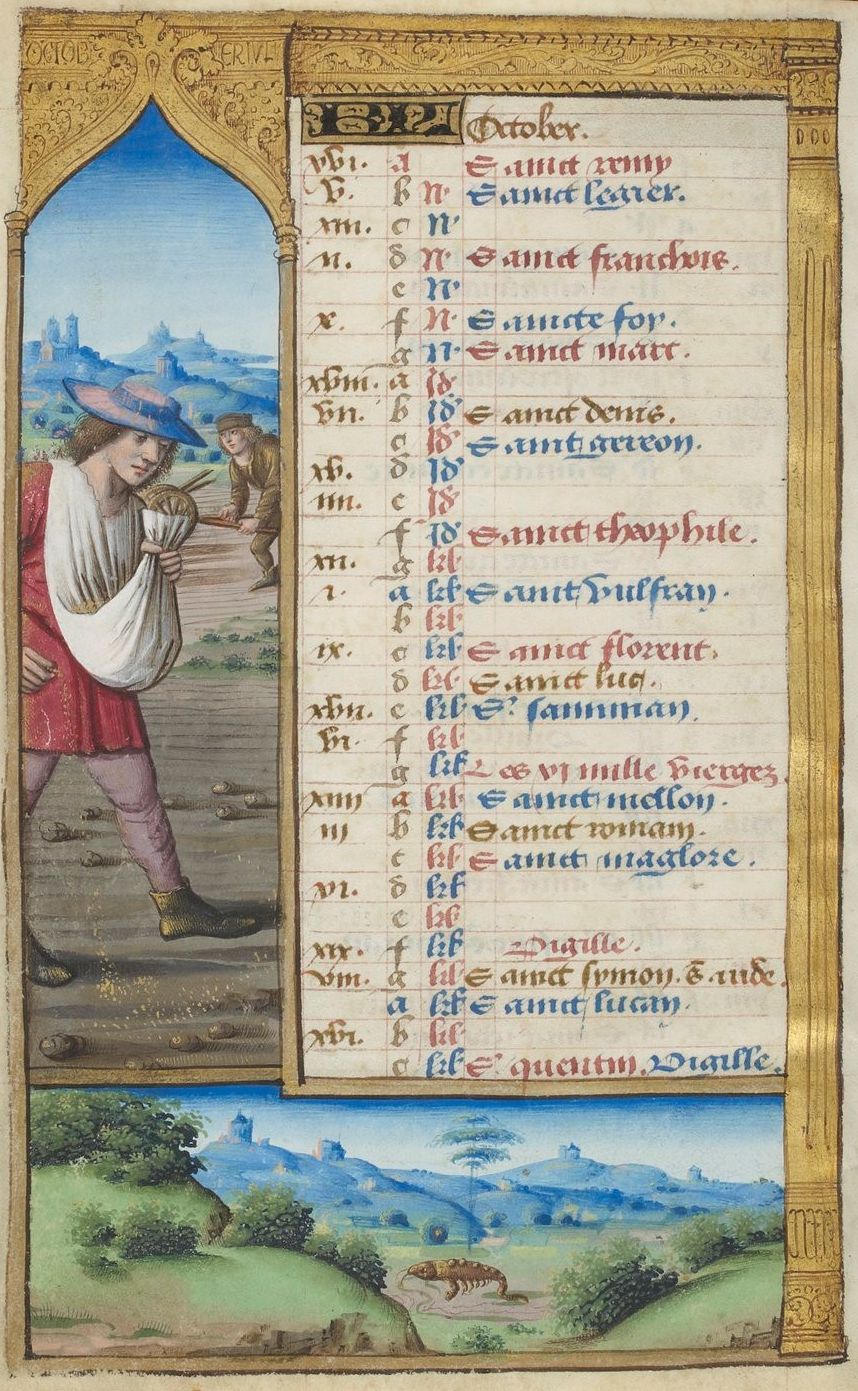 OCTOB ERIVL
October.
xvi. a Sainct remy
v. b N. Sainct legier.
xiii. c N.
ii. d N. Sainct franchois.
e N.
x. f N. Saincte foy.
g N. Sainct marc.
xviii. a Id
vii. b Id Sainct denis.
c Id Sainct gereon.
xv. d Id
iiii. e Id
f Id Sainct theophile.
xii. g kl
i. a kl Sainct vulfran.
b kl
ix. c kl Sainct florent.
d kl Sainct luc.
xvii. e kl St.
vi. f kl
g kl Les xi mille vierges.
xiiii a kl Sainct mellon.
iii b kl Sainct romain.
c kl Sainct maglore.
xi. d kl
e kl
xix. f kl Vigille.
viii. g kl Sainct symon. S. iude.
a kl Sainct lucan.
xvi. b kl
c kl St. quentin. Vigille.